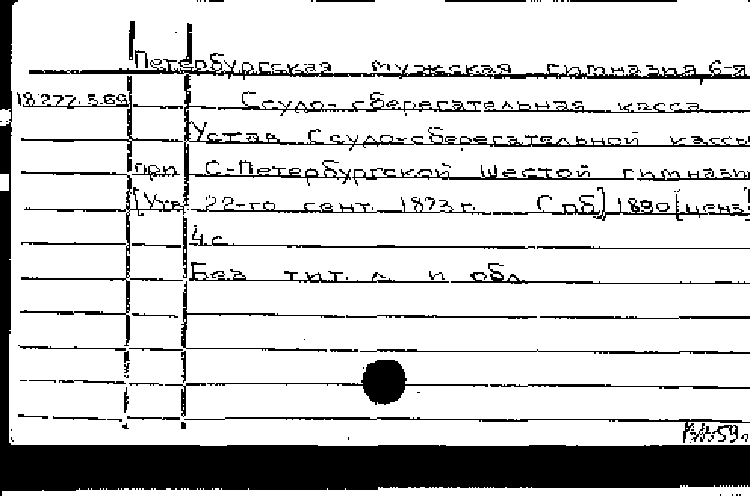 Петербургская мужская гимназия, 6-я
18.277.5.69 Ссудо-сберегательная касса
Устав Ссудо-сберегательной кассы
при С-Петербургской Шестой гимназии
[Утв. 22-го сент. 1873 г. Спб] 1890 [ценз]
4 с.
Без тит. л. и обл.